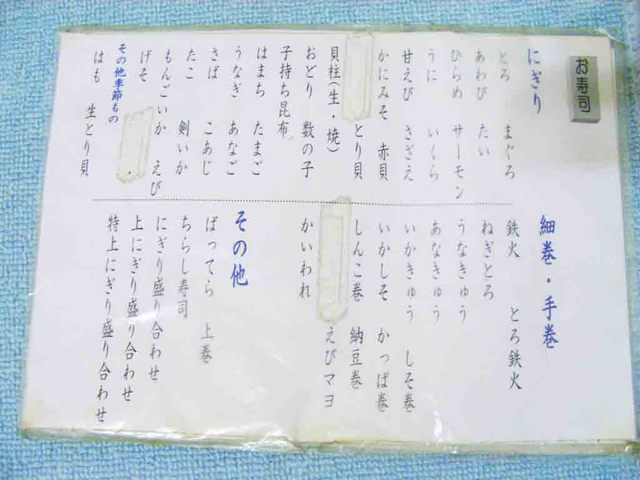 お寿司
にぎり
とろ まぐろ
あわび たい
ひらめ サーモン
うに いくら
甘えび さざえ
かにみそ 赤貝
とり貝
貝柱(生・焼)
おどり 数の子
子持ち昆布
はまち たまご
うなぎ あなご
さば こあじ
たこ 剣いか
もんごいか えび
げそ
その他季節もの
はも 生とり貝
細巻・手巻
鉄火 とろ鉄火
ねぎとろ
うなきゅう
あなきゅう
いかきゅう しそ巻
いかしそ かっぱ巻
しんこ巻 納豆巻
えびマヨ
かいわれ
その他
ばってら 上巻
ちらし寿司
にぎり盛り合わせ
上にぎり盛り合わせ
特上にぎり盛り合わせ